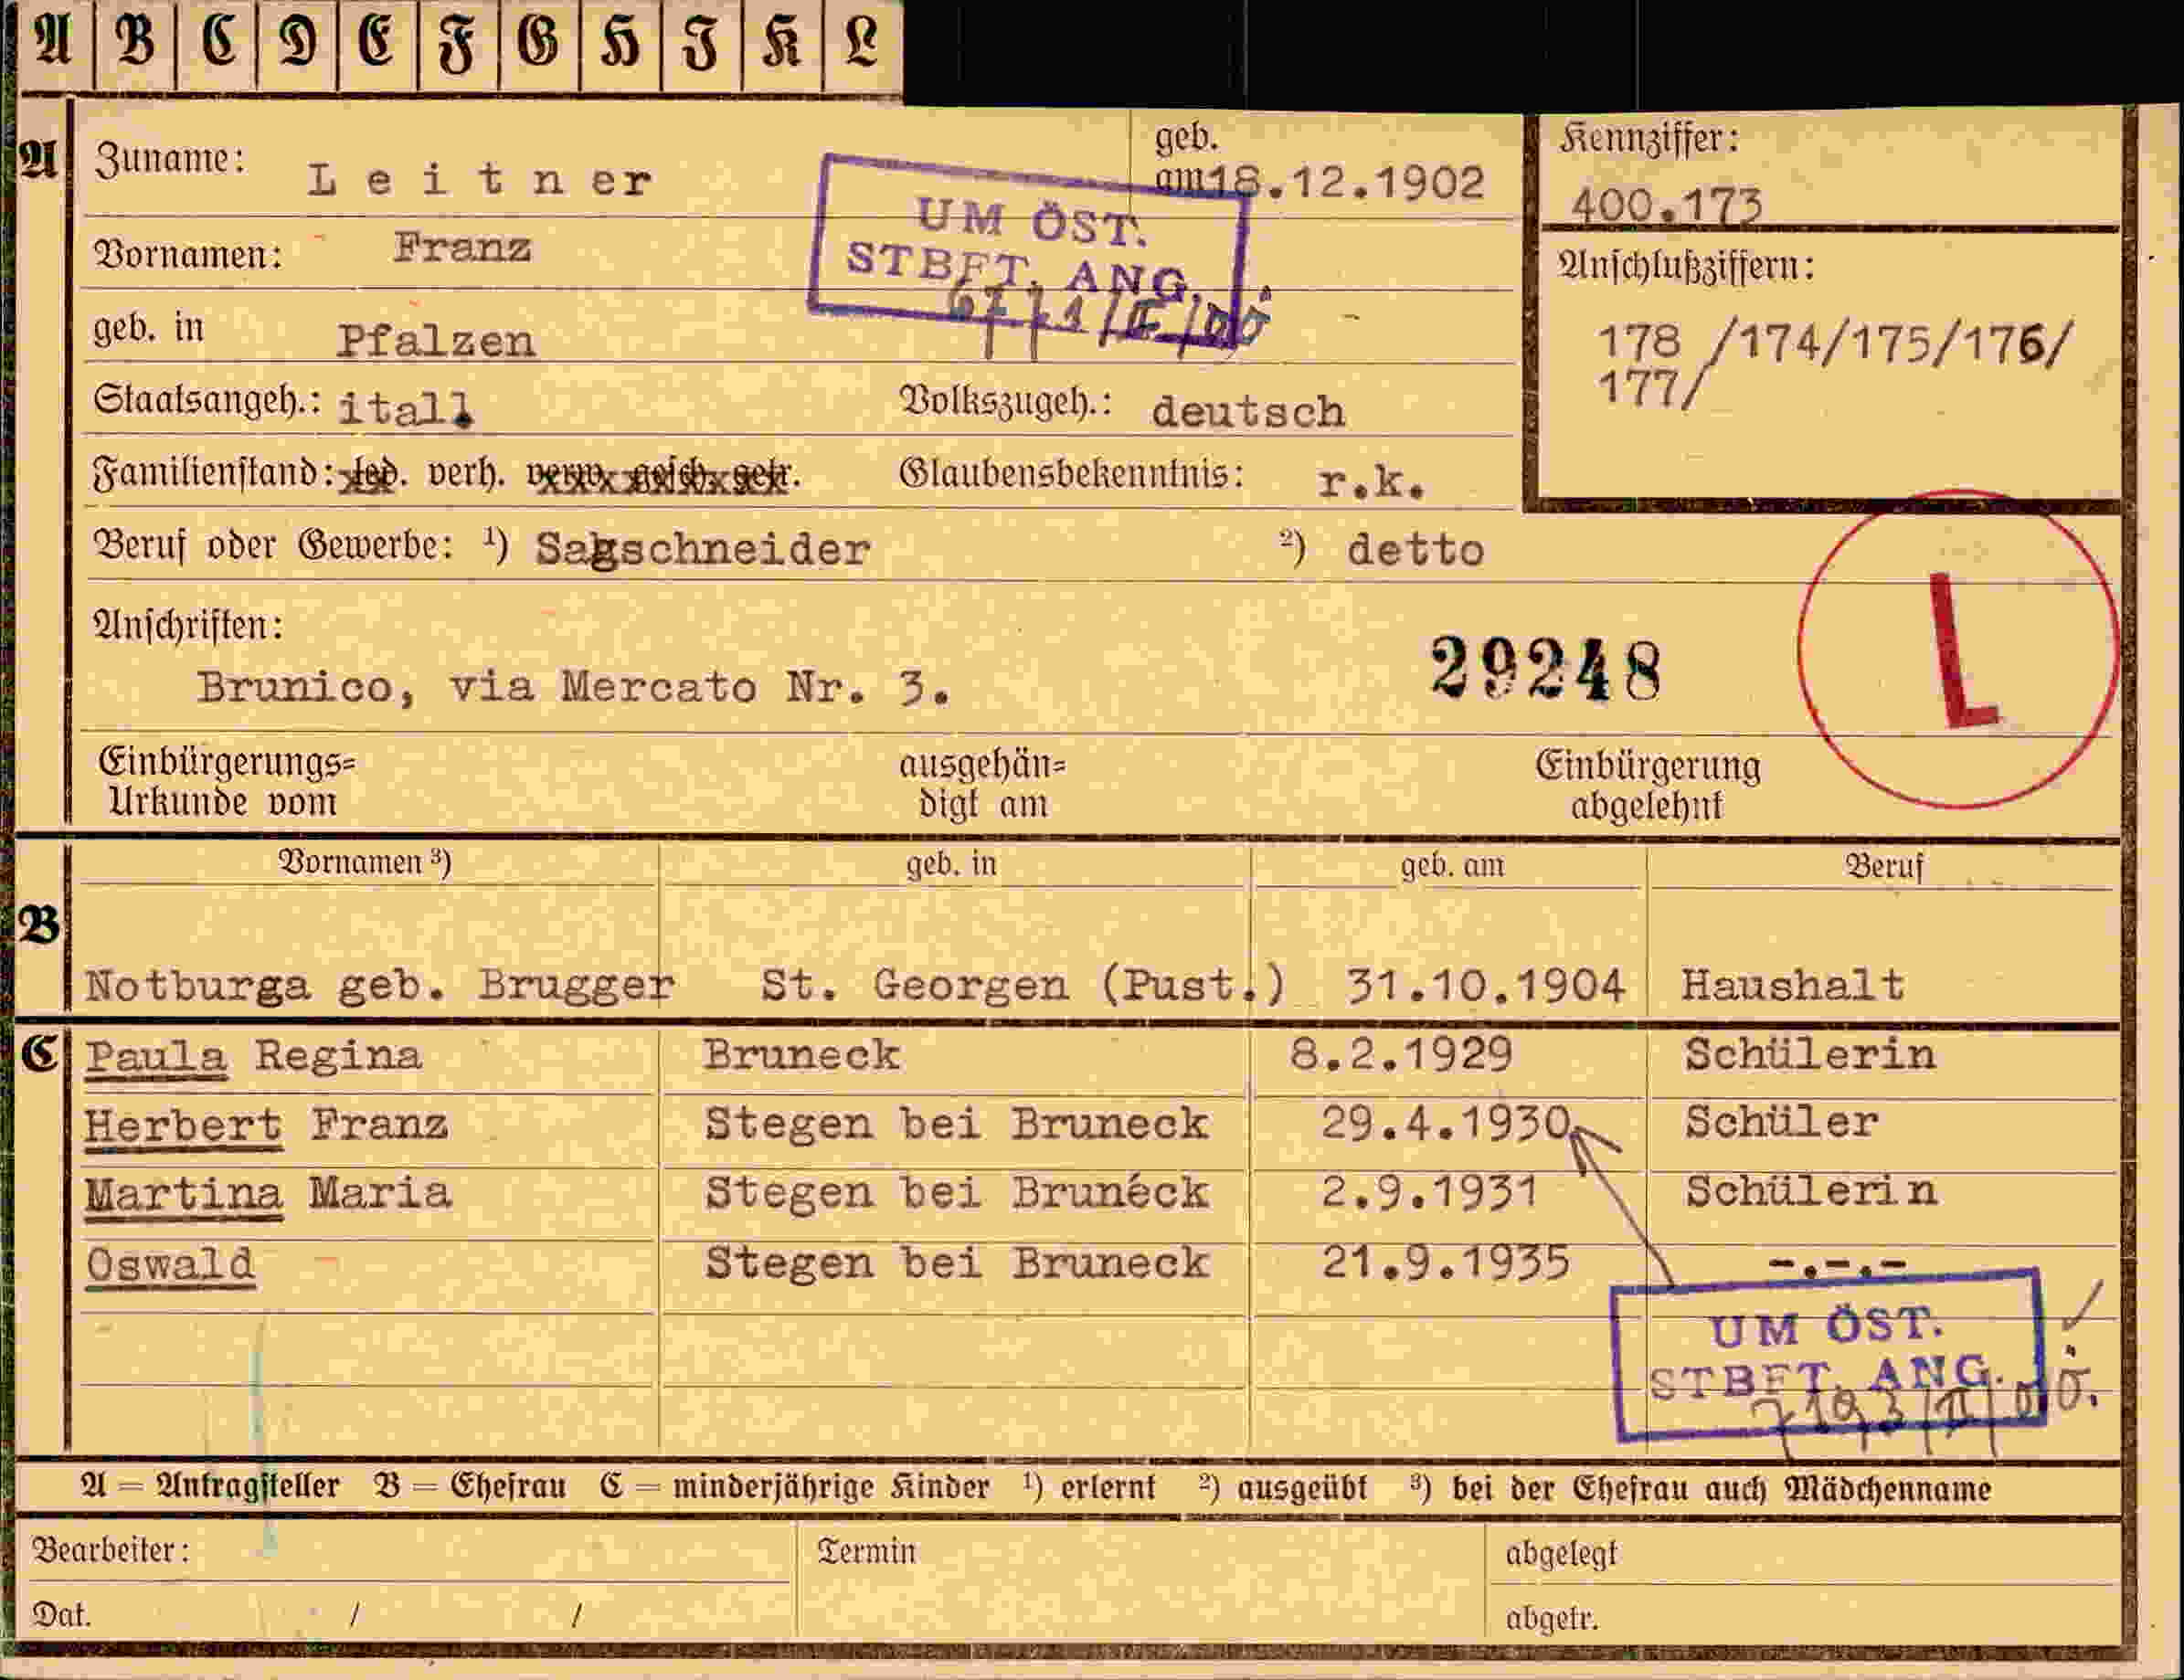 A B C D E F G H I K L
A
Zuname: Leitner
geb. am 18.12.1902
Kennziffer:
400.173
UM ÖST.
STBFT. ANG.
Vornamen: Franz
Anschlußziffern:
178 /174/175/176/
177/
geb. in Pfalzen
Staatsangeh.: ital. Volkszugeh.: deutsch
Familienstand: led. verh. verw. gesch. getr. Glaubensbekenntnis: r.k.
Beruf oder Gewerbe: ¹) Sagschneider ²) detto
Anschriften:
29248
L
Brunico, via Mercato Nr. 3.
Einbürgerungs= ausgehän= Einbürgerung
Urkunde vom digt am abgelehnt
Vornamen ³) geb. in geb. am Beruf
B
Notburga geb. Brugger St. Georgen (Pust.) 31.10.1904 Haushalt
C Paula Regina Bruneck 8.2.1929 Schülerin
Herbert Franz Stegen bei Bruneck 29.4.1930 Schüler
Martina Maria Stegen bei Brunéck 2.9.1931 Schülerin
Oswald Stegen bei Bruneck 21.9.1935 -.-.-
UM ÖST.
STBFT. ANG.
A = Antragsteller B = Ehefrau C = minderjährige Kinder ¹) erlernt ²) ausgeübt ³) bei der Ehefrau auch Mädchenname
Bearbeiter: Termin abgelegt
Dat. / / abgetr.